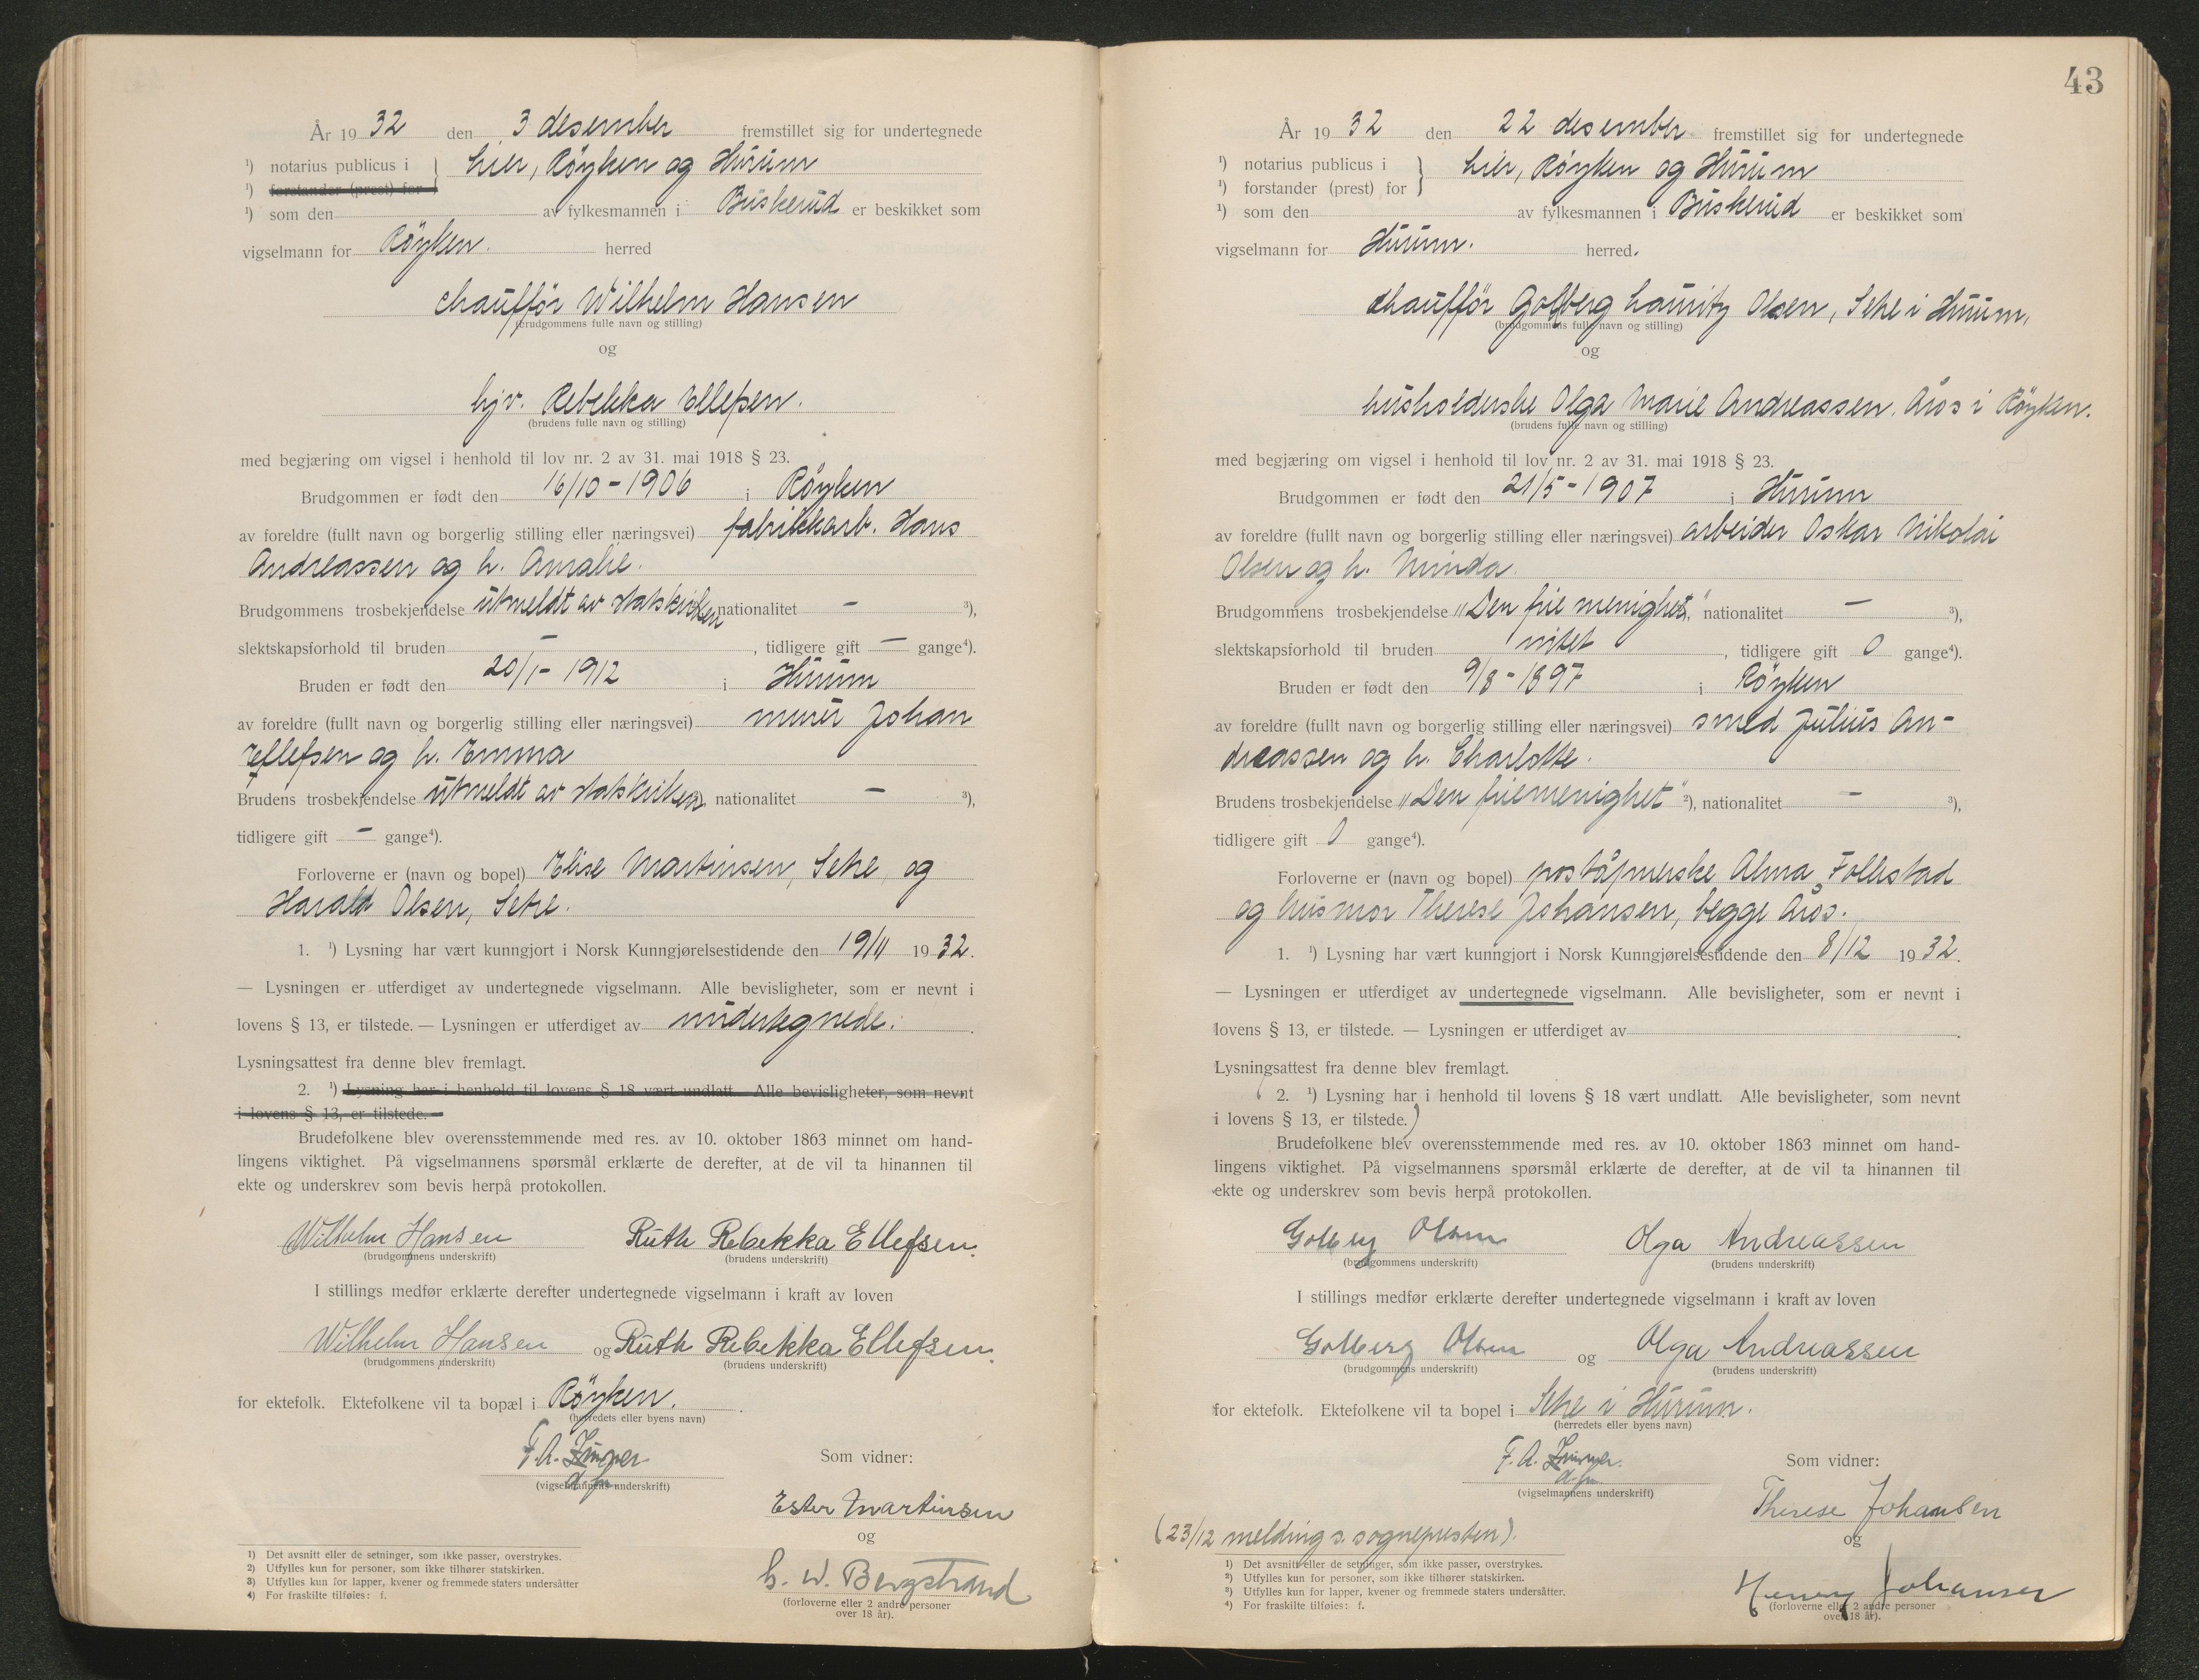 År 19 32 den 3 desember fremstillet sig for undertegnede
¹) notarius publicus i } Lier, Röyken og Hurum
¹) forstander (prest) for
¹) som den av fylkesmannen i Buskerud er beskikket som
vigselmann for Röyken. herred
chaufför Wilhelm Hansen
(brudgommens fulle navn og stilling)
og
hjv. Rebekka Ellefsen.
(brudens fulle navn og stilling)
med begjæring om vigsel i henhold til lov nr. 2 av 31. mai 1918 § 23.
Brudgommen er født den 16/10 - 1906 i Röyken
av foreldre (fullt navn og borgerlig stilling eller næringsvei) fabrikkarb. Hans
Andreassen og h. Amalie.
Brudgommens trosbekjendelse utmeldt av statskirken nationalitet - ³),
slektskapsforhold til bruden - , tidligere gift - gange⁴).
Bruden er født den 20/1 - 1912 i Hurum
av foreldre (fullt navn og borgerlig stilling eller næringsvei) murer Johan
Ellefsen og h. Emma
Brudens trosbekjendelse utmeldt av statskirken, nationalitet - ³),
tidligere gift - gange⁴).
Forloverne er (navn og bopel) Elise Martinsen, Sætre, og
Harald Olsen, Setre.
1. ¹) Lysning har vært kunngjort i Norsk Kunngjørelsestidende den 19/11 1932.
— Lysningen er utferdiget av undertegnede vigselmann. Alle bevisligheter, som er nevnt i
lovens § 13, er tilstede. — Lysningen er utferdiget av undertegnede.
Lysningsattest fra denne blev fremlagt.
2. ¹) Lysning har i henhold til lovens § 18 vært undlatt. Alle bevisligheter, som nevnt
i lovens § 13, er tilstede.
Brudefolkene blev overensstemmende med res. av 10. oktober 1863 minnet om hand-
lingens viktighet. På vigselmannens spørsmål erklærte de derefter, at de vil ta hinannen til
ekte og underskrev som bevis herpå protokollen.
Wilhelm Hansen Ruth Rebekka Ellefsen.
(brudgommens underskrift) (brudens underskrift)
I stillings medfør erklærte derefter undertegnede vigselmann i kraft av loven
Wilhelm Hansen og Ruth Rebekka Ellefsen.
(brudgommens underskrift) (brudens underskrift)
for ektefolk. Ektefolkene vil ta bopæl i Röyken.
(herredets eller byens navn)
F. A.
(vigselmannens underskrift)
Som vidner:
Ester Martinsen
og
W. Bergstrand
(forloverne eller 2 andre personer
over 18 år).
1) Det avsnitt eller de setninger, som ikke passer, overstrykes.
2) Utfylles kun for personer, som ikke tilhører statskirken.
3) Utfylles kun for lapper, kvener og fremmede staters undersåtter
4) For fraskilte tilføies: f.
43
År 19 32 den 22 desember fremstillet sig for undertegnede
¹) notarius publicus i } Lier, Röyken og Hurum
¹) forstander (prest) for
¹) som den av fylkesmannen i Buskerud er beskikket som
vigselmann for Hurum. herred.
chaufför Golberg Lauritz Olsen, Setre i Hurum,
(brudgommens fulle navn og stilling)
og
husholderske Olga Marie Andreassen, Åros i Röyken.
(brudens fulle navn og stilling)
med begjæring om vigsel i henhold til lov nr. 2 av 31. mai 1918 § 23.
Brudgommen er født den 21/5 - 1907 i Hurum
av foreldre (fullt navn og borgerlig stilling eller næringsvei) arbeider Oskar Nikolai
Olsen og h. Minda.
Brudgommens trosbekjendelse „Den frie menighet", nationalitet - ³),
slektskapsforhold til bruden intet , tidligere gift 0 gange⁴).
Bruden er født den 9/8 - 1897 i Röyken
av foreldre (fullt navn og borgerlig stilling eller næringsvei) smed Julius An-
dreassen og h. Charlotte.
Brudens trosbekjendelse „Den frie menighet" ²), nationalitet - ³),
tidligere gift 0 gange⁴).
Forloverne er (navn og bopel) poståpnerske Alma Follestad
og husmor Therese Johansen, begge Åros.
1. ¹) Lysning har vært kunngjort i Norsk Kunngjørelsestidende den 8/12 1932.
— Lysningen er utferdiget av undertegnede vigselmann. Alle bevisligheter, som er nevnt i
lovens § 13, er tilstede. — Lysningen er utferdiget av
Lysningsattest fra denne blev fremlagt.
( 2. ¹) Lysning har i henhold til lovens § 18 vært undlatt. Alle bevisligheter, som nevnt
i lovens § 13, er tilstede.)
Brudefolkene blev overensstemmende med res. av 10. oktober 1863 minnet om hand-
lingens viktighet. På vigselmannens spørsmål erklærte de derefter, at de vil ta hinannen til
ekte og underskrev som bevis herpå protokollen.
Golberg Olsen Olga Andreassen
(brudgommens underskrift) (brudens underskrift)
I stillings medfør erklærte derefter undertegnede vigselmann i kraft av loven
Golberg Olsen og Olga Andreassen
(brudgommens underskrift) (brudens underskrift)
for ektefolk. Ektefolkene vil ta bopel i Setre i Hurum.
(herredets eller byens navn)
F. A.
(vigselmannens underskrift)
Som vidner:
Therese Johansen
og
Henry Johansen
(forloverne eller 2 andre personer
over 18 år).
(23/12 melding s. sognepresten).
1) Det avsnitt eller de setninger, som ikke passer, overstrykes.
2) Utfylles kun for personer, som ikke tilhører statskirken.
3) Utfylles kun for lapper, kvener og fremmede staters undersåtter.
4) For fraskilte tilføies: f.